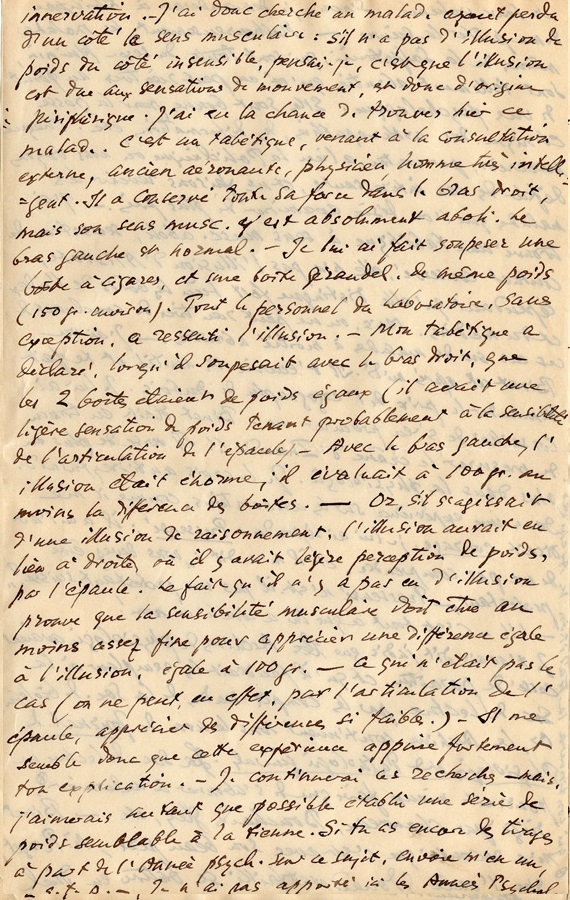 innervation. – J'ai donc cherché un malade ayant perdu
d'un côté le sens musculaire : s'il n'a pas d'illusion de
poids du côté insensible, pensai-je, c'est que l'illusion
est due aux sensations de mouvement, est donc d'origine
périphérique. J'ai eu la chance de trouver hier ce
malade. C'est un tabétique, venant à la consultation
externe, ancien aéronaute, physicien, homme très intelli-
=gent. Il a conservé toute sa force dans le bras droit,
mais son sens musc. y est absolument aboli. Le
bras gauche est normal. – Je lui ai fait soupeser une
boîte à cigares, et une boîte Girandel. de même poids
(150 gr. environ). Tout le personnel du Laboratoire, sans
exception, a ressenti l'illusion. – Mon tabétique a
déclaré, lorsqu'il soupesait avec le bras droit, que
les 2 boîtes étaient de poids égaux (il avait une
légère sensation de poids tenant probablement à la sensibilité
de l'articulation de l'épaule) – Avec le bras gauche, l'
illusion était énorme, il évaluait à 100 gr. au
moins la différence des boîtes. — Or, s'il s'agissait
d'une illusion de raisonnement, l'illusion aurait eu
lieu à droite, où il y avait légère perception de poids,
par l'épaule. Le fait qu'il n'y a pas eu d'illusion
prouve que la sensibilité musculaire doit être au
moins assez fine pour apprécier une différence égale
à l'illusion, égale à 100 gr. — ce qui n'était pas le
cas (on ne peut, en effet, par l'articulation de l'
épaule, apprécier des différences si faibles.) – Il me
semble donc que cette expérience appuie fortement
ton explication. – Je continuerai ces recherches – mais,
j'aimerais autant que possible établir une série de
poids semblable à la tienne. Si tu as encore des tirages
à part de l'Année psych. sur ce sujet, envoie m'en un,
– s.t.p. –, Je n'ai pas apporté ici les Années Psychol.